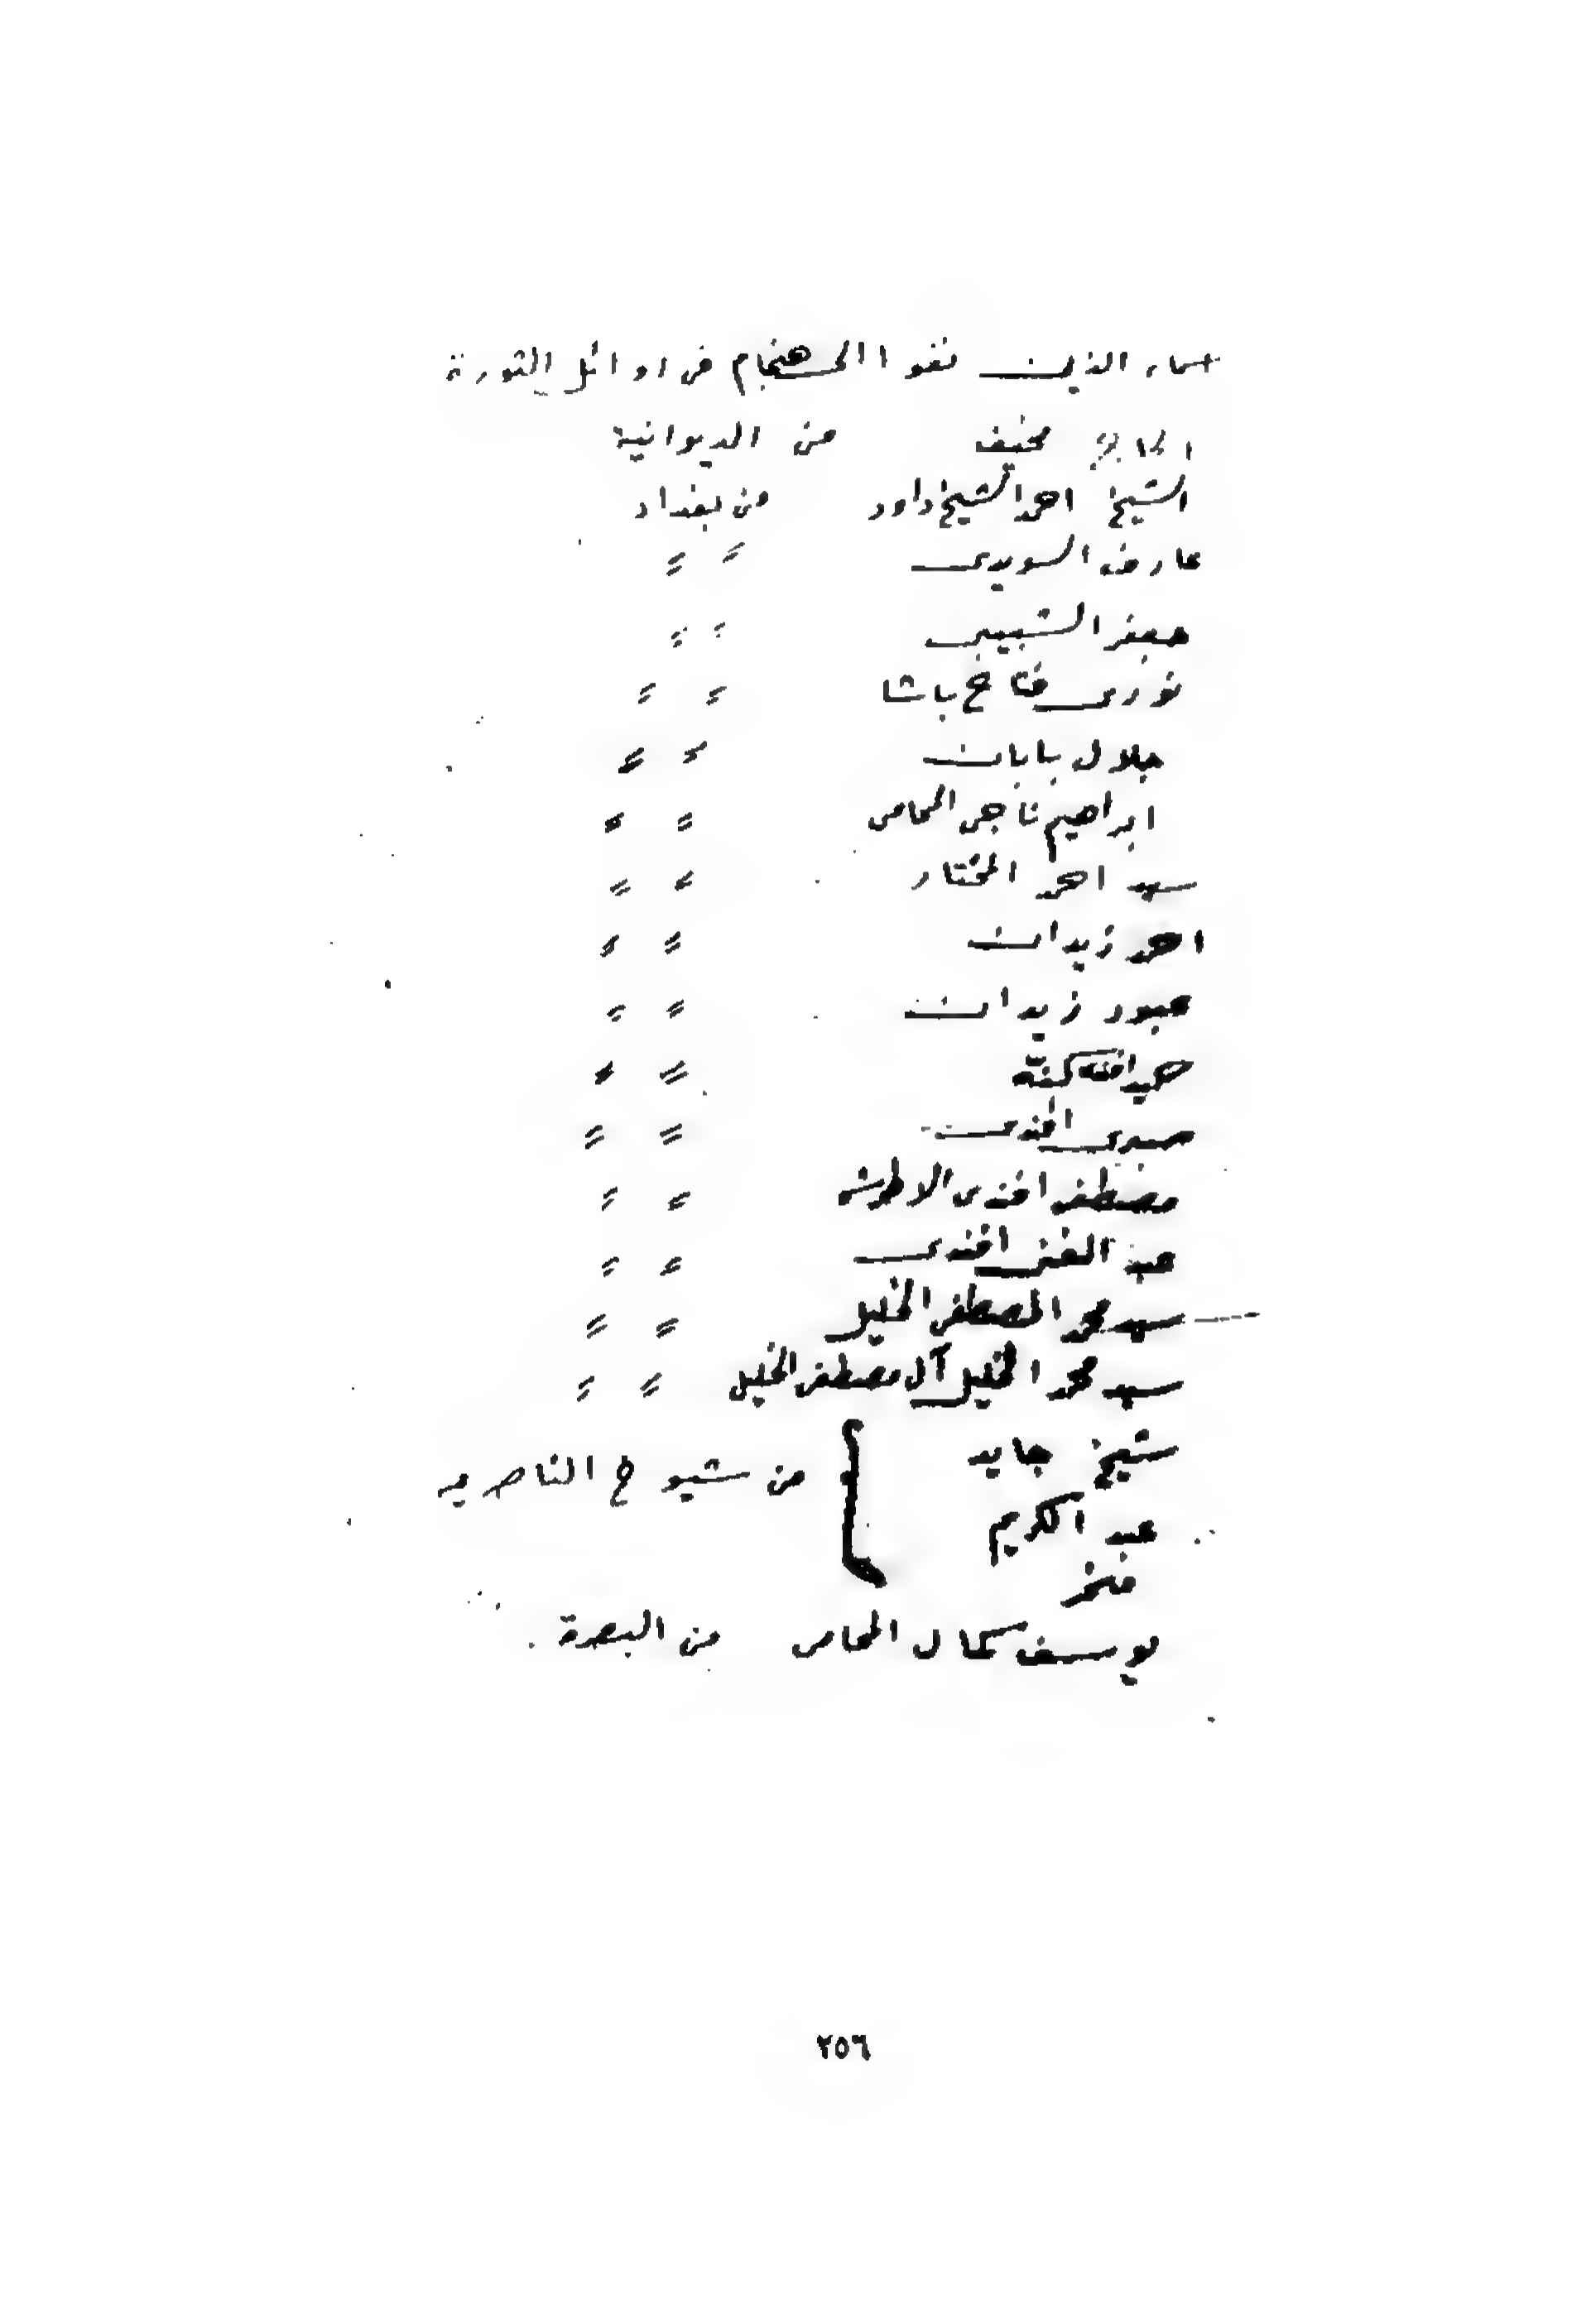 اسماء الذين نفوا الى هنجام في اوائل الثورة
الحاج مخيف من الديوانية
الشيخ احمد الشيخ داود من بغداد
عارف السويدي 〃 〃
جعفر الشبيبي 〃 〃
نوري فتاح باشا 〃 〃
جلال بابان 〃 〃
ابراهيم ناجي المحامي 〃 〃
سيد احمد المختار 〃 〃
احمد زيدان 〃 〃
عبود زيدان 〃 〃
حميد افندي كنه 〃 〃
صبري افندي 〃 〃
مصطفى افندي الاطرش 〃 〃
عبد الغني افندي 〃 〃
سيد محمد المصطفى الخليل 〃 〃
سيد محمد الخليل آل مصطفى الخليل 〃 〃
شيخ جايد
عبد الكريم } من شيوخ الناصريه
يوسف كمال المحامي من البصرة
٢٥٦